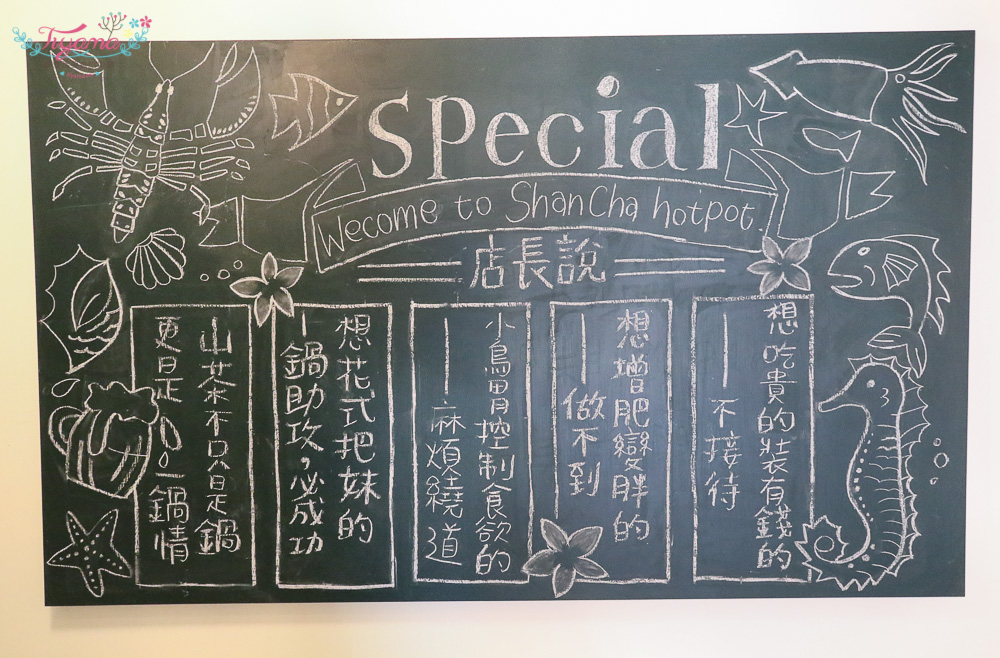 Tiyama
special
Wecome to ShanCha hotpot
店長說
想吃貴的裝有錢的
——不接待
想增肥變胖的
——做不到
小鳥胃控制食欲的
——麻煩繞道
想花式把妹的
一鍋助攻，必成功
山茶不只是鍋
更是......一鍋情